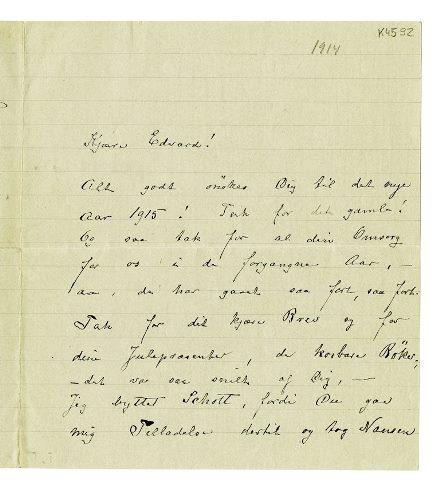 K4592
1914
Kjære Edvard!
Alt godt ønskes Dig til det nye
Aar 1915! Tak for det gamle!
Og saa tak for al din Omsorg
for os i de forgangne Aar, –
aa, de har gaaet saa fort, saa fort.
Tak for dit kjære Brev og for
dine Julepræsenter, de kosbare Bøker,
– det var saa snilt af Dig, –
Jeg byttet Schott, fordi Du gav
mig Tilladelse dertil og tog Nansen